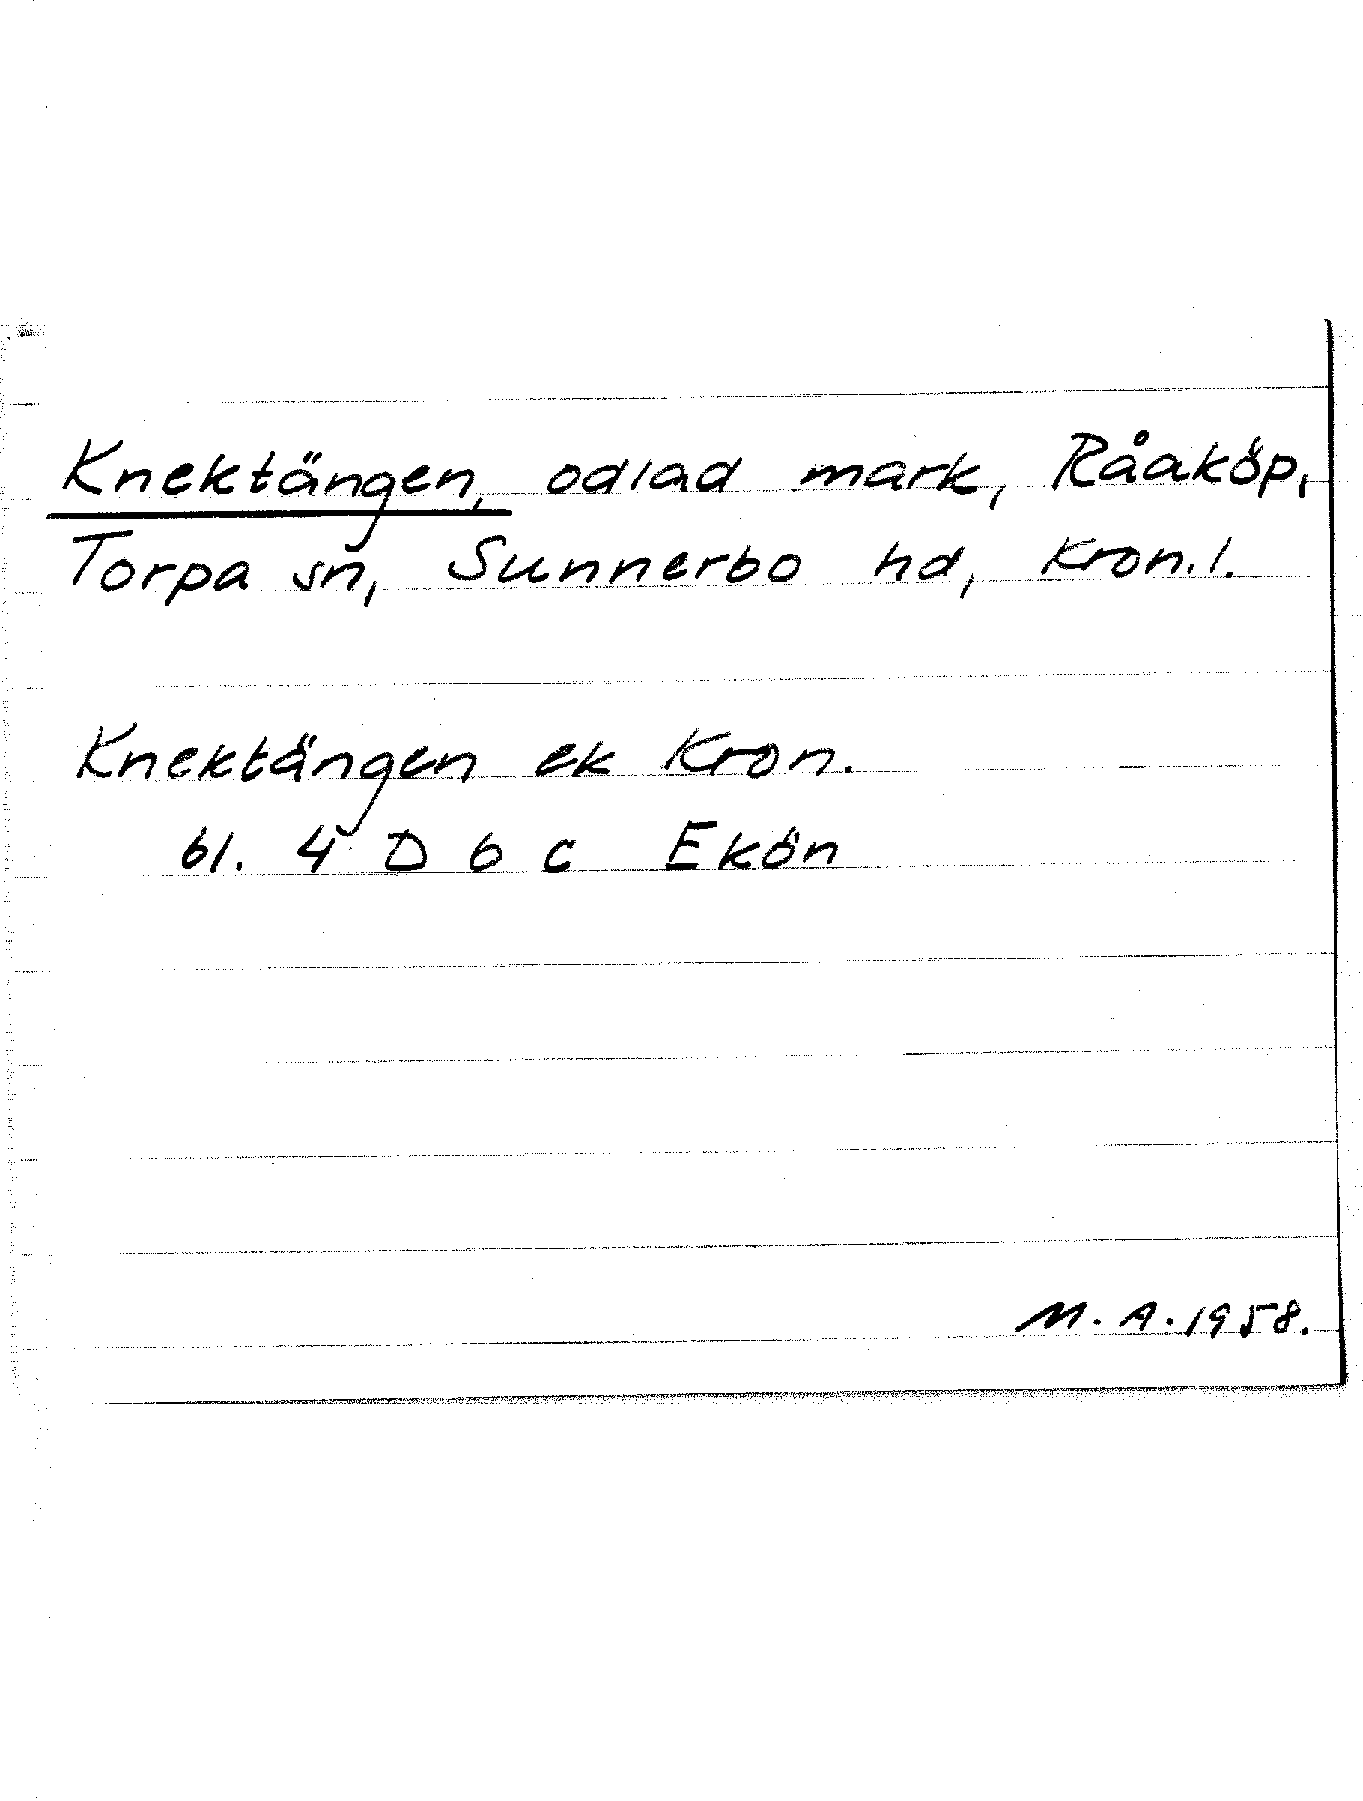 Knektängen, odlad mark, Råaköp,
Torpa sn, Sunnerbo hd, Kron.l.
Knektängen ek Kron.
bl. 4 D 6 c Ekön
M.A.1958.